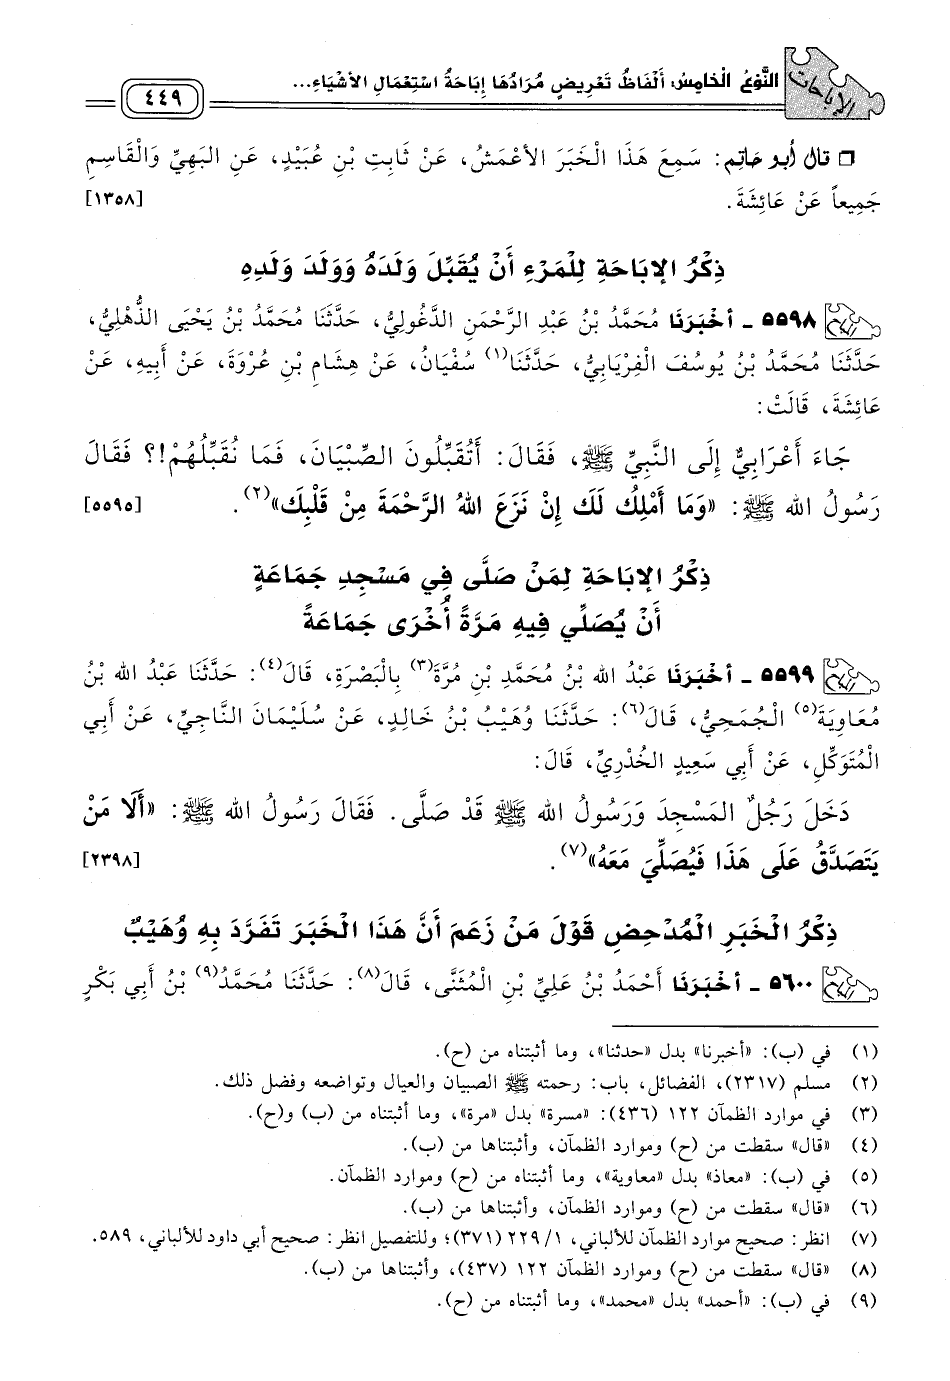 الإباحات
النَّوْعُ الْخَامِسُ: أَلْفَاظُ تَعْرِيضٍ مُرَادُهَا إِبَاحَةُ اسْتِعْمَالِ الأَشْيَاءِ...
٤٤٩
❒ قال أبو حاتِم: سَمِعَ هَذَا الْخَبَرَ الأَعْمَشُ، عَنْ ثَابِتِ بْنِ عُبَيْدٍ، عَنِ البَهِيِّ وَالْقَاسِمِ
جَمِيعاً عَنْ عَائِشَةَ. [١٣٥٨]
ذِكْرُ الإبَاحَةِ لِلْمَرْءِ أَنْ يُقَبِّلَ وَلَدَهُ وَوَلَدَ وَلَدِهِ
٥٥٩٨ ـ أخْبَرَنَا مُحَمَّدُ بْنُ عَبْدِ الرَّحْمَنِ الدَّغُولِيُّ، حَدَّثَنَا مُحَمَّدُ بْنُ يَحْيَى الذُّهْلِيُّ،
حَدَّثَنَا مُحَمَّدُ بْنُ يُوسُفَ الْفِرْيَابِيُّ، حَدَّثَنَا(١) سُفْيَانُ، عَنْ هِشَامِ بْنِ عُرْوَةَ، عَنْ أَبِيهِ، عَنْ
عَائِشَةَ، قَالَتْ:
جَاءَ أَعْرَابِيٌّ إِلَى النَّبِيِّ ﷺ، فَقَالَ: أَتُقَبِّلُونَ الصِّبْيَانَ، فَمَا نُقَبِّلُهُمْ!؟ فَقَالَ
رَسُولُ الله ﷺ: «وَمَا أَمْلِكُ لَكَ إِنْ نَزَعَ اللهُ الرَّحْمَةَ مِنْ قَلْبِكَ»(٢). [٥٥٩٥]
ذِكْرُ الإبَاحَةِ لِمَنْ صَلَّى فِي مَسْجِدِ جَمَاعَةٍ
أَنْ يُصَلِّي فِيهِ مَرَّةً أُخْرَى جَمَاعَةً
٥٥٩٩ ـ أخْبَرَنَا عَبْدُ الله بْنُ مُحَمَّدِ بْنِ مُرَّةَ(٣) بِالْبَصْرَةِ، قَالَ(٤): حَدَّثَنَا عَبْدُ الله بْنُ
مُعَاوِيَةَ(٥) الْجُمَحِيُّ، قَالَ(٦): حَدَّثَنَا وُهَيْبُ بْنُ خَالِدٍ، عَنْ سُلَيْمَانَ النَّاجِيِّ، عَنْ أَبِي
الْمُتَوَكِّلِ، عَنْ أَبِي سَعِيدٍ الخُدْرِيِّ، قَالَ:
دَخَلَ رَجُلٌ المَسْجِدَ وَرَسُولُ الله ﷺ قَدْ صَلَّى. فَقَالَ رَسُولُ الله ﷺ: «أَلَا مَنْ
يَتَصَدَّقُ عَلَى هَذَا فَيُصَلِّيَ مَعَهُ»(٧). [٢٣٩٨]
ذِكْرُ الْخَبَرِ الْمُدْحِضِ قَوْلَ مَنْ زَعَمَ أَنَّ هَذَا الْخَبَرَ تَفَرَّدَ بِهِ وُهَيْبٌ
٥٦٠٠ ـ أخْبَرَنَا أَحْمَدُ بْنُ عَلِيِّ بْنِ الْمُثَنَّى، قَالَ(٨): حَدَّثَنَا مُحَمَّدُ(٩) بْنُ أَبِي بَكْرٍ
(١) في (ب): «أخبرنا» بدل «حدثنا»، وما أثبتناه من (ح).
(٢) مسلم (٢٣١٧)، الفضائل، باب: رحمته ﷺ الصبيان والعيال وتواضعه وفضل ذلك.
(٣) في موارد الظمآن ١٢٢ (٤٣٦): «مسرة» بدل «مرة»، وما أثبتناه من (ب) و(ح).
(٤) «قال» سقطت من (ح) وموارد الظمآن، وأثبتناها من (ب).
(٥) في (ب): «معاذ» بدل «معاوية»، وما أثبتناه من (ح) وموارد الظمآن.
(٦) «قال» سقطت من (ح) وموارد الظمآن، وأثبتناها من (ب).
(٧) انظر: صحيح موارد الظمآن للألباني، ١/ ٢٢٩ (٣٧١)؛ وللتفصيل انظر: صحيح أبي داود للألباني، ٥٨٩.
(٨) «قال» سقطت من (ح) وموارد الظمآن ١٢٢ (٤٣٧)، وأثبتناها من (ب).
(٩) في (ب): «أحمد» بدل «محمد»، وما أثبتناه من (ح).